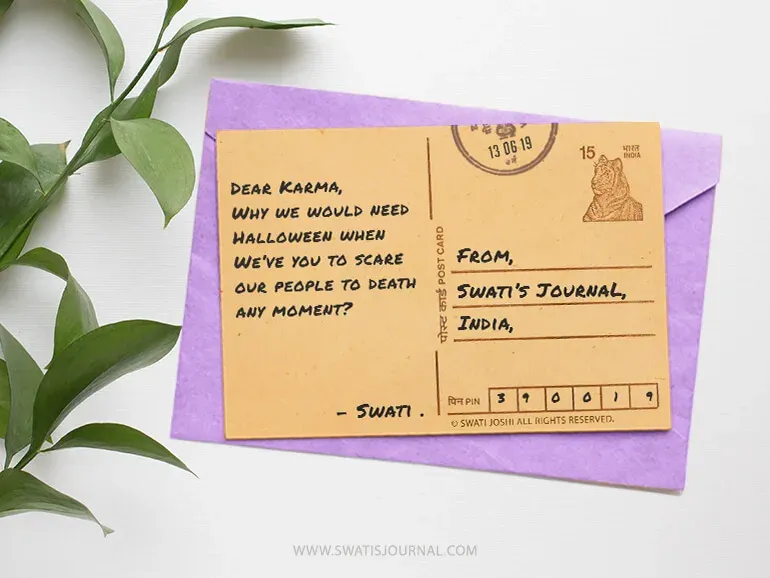 Dear Karma,
Why we would need
Halloween when
We've you to scare
our people to death
any moment?
- Swati .
पोस्ट कार्ड POST CARD
13 06 19
15 भारत
INDIA
From,
Swati's Journal,
India,
पिन PIN 3 9 0 0 1 9
© SWATI JOSHI ALL RIGHTS RESERVED.
WWW.SWATISJOURNAL.COM